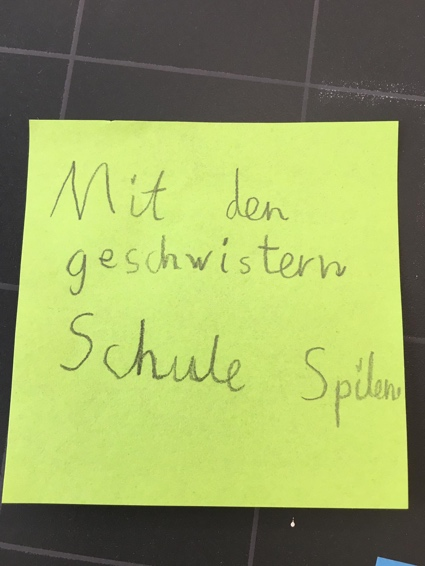 Mit den
geschwistern
Schule Spilen